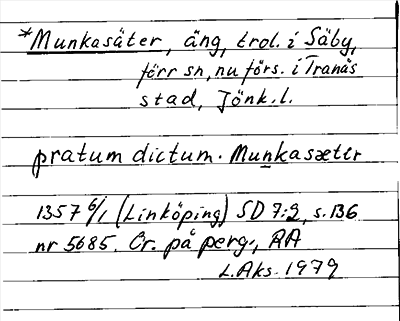 *Munkasäter, äng, trol. i Säby,
förr sn, nu förs. i Tranås
stad, Jönk. l.
pratum dictum. Munkasættr
1357 6/1 (Linköping) SD 7:2, s. 136
nr 5685. Or. på perg., RA
L. Aks. 1979